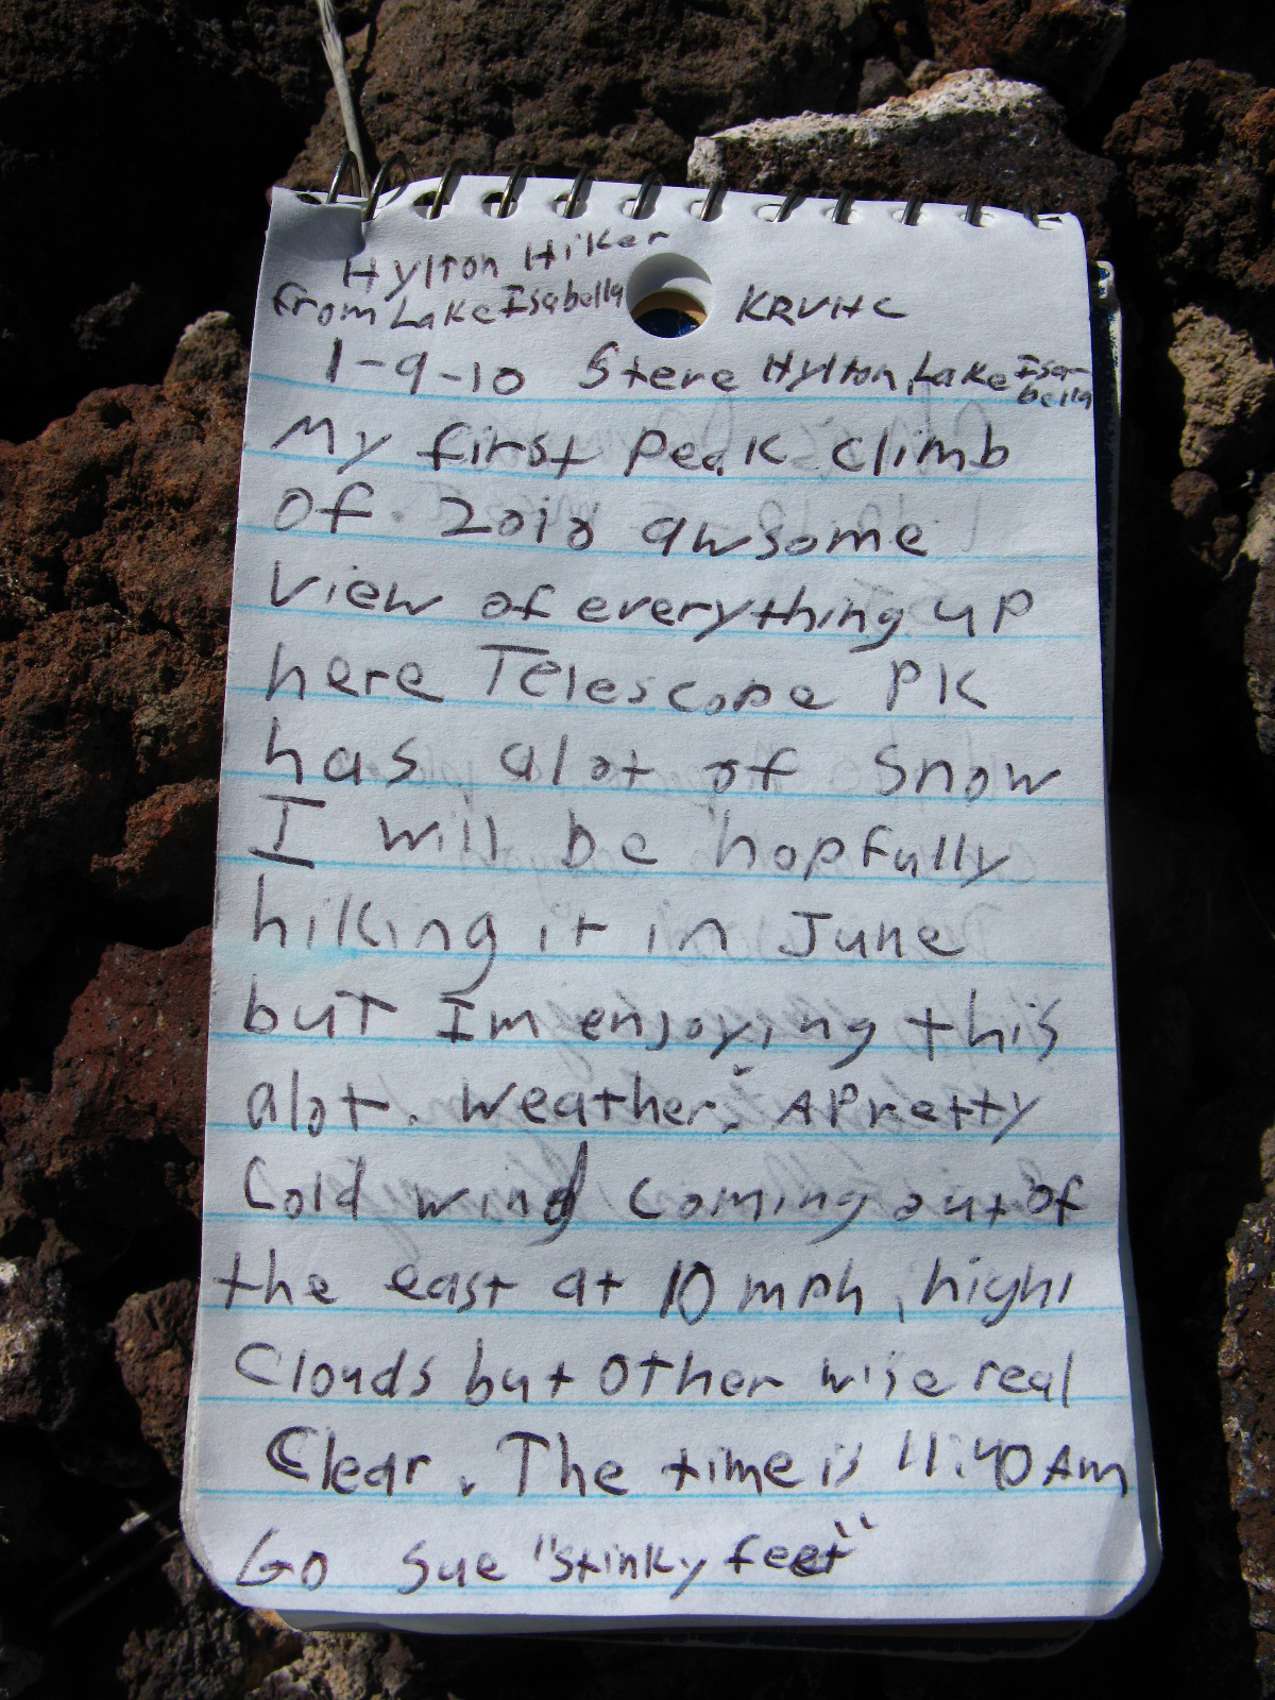 Hylton Hiker
From Lake Isabella KRVHC
1-9-10 Steve Hylton, Lake Isabella
My first Peak climb
of 2010 awsome
view of everything up
here Telescope PK
has alot of snow
I will be hopfully
hiking it in June
but Im enjoying this
alot. Weather: A Pretty
Cold wind coming out of
the east at 10 mph, high
Clouds but other wise real
Clear. The time is 11:40 AM
Go Sue "stinky feet"